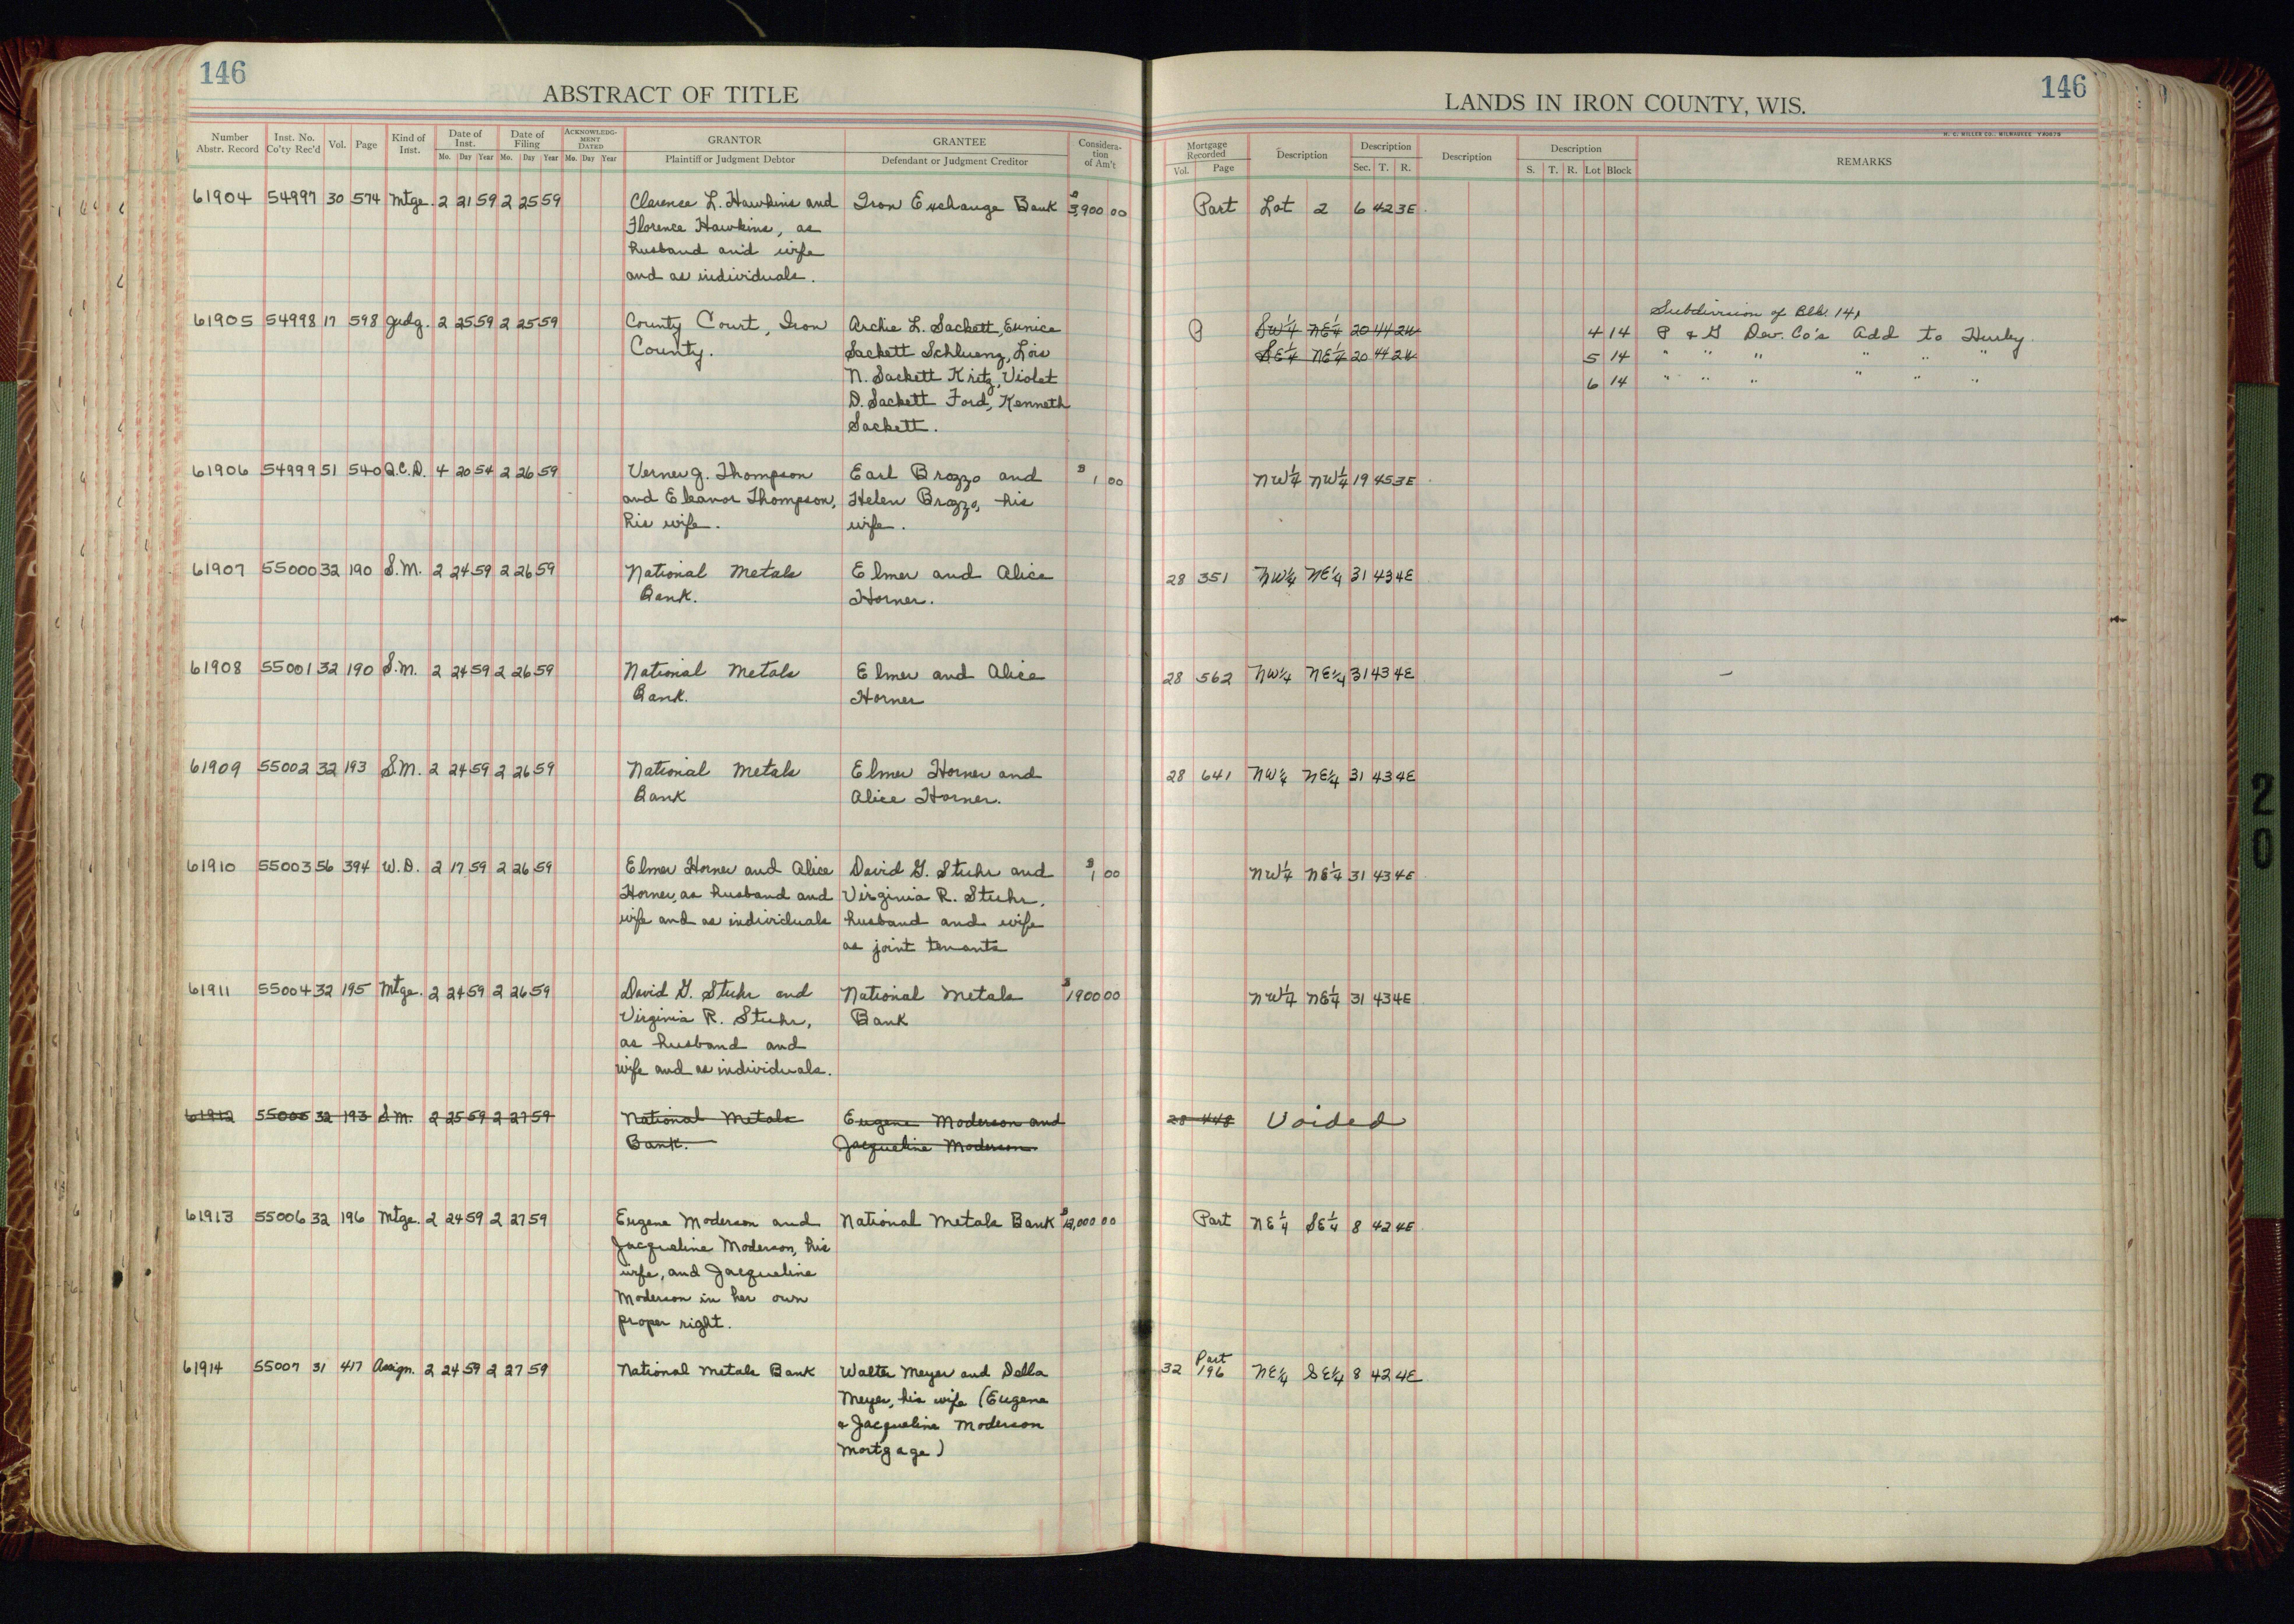 146
ABSTRACT OF TITLE
Number Abstr. Record Inst. No. Co'ty Rec'd Vol. Page Kind of Inst. Date of Inst. Mo. Day Year Date of Filing Mo. Day Year ACKNOWLEDGMENT DATED Mo. Day Year GRANTOR Plaintiff or Judgment Debtor GRANTEE Defendant or Judgment Creditor Consideration of Am't
61904 54997 30 574 Mtge. 2 21 59 2 25 59 Clarence L. Hawkins and Iron Exchange Bank $3,900 00
Florence Hawkins, as
husband and wife
and as individuals.
61905 54998 17 598 Judg. 2 25 59 2 25 59 County Court, Iron Archie L. Sackett, Eunice
County. Sackett Schluenz, Lois
N. Sackett Kritz, Violet
D. Sackett Ford, Kenneth
Sackett.
61906 54999 51 540 Q.C.D. 4 20 54 2 26 59 Verner J. Thompson Earl Brozzo and $1 00
and Eleanor Thompson, Helen Brozzo, his
his wife. wife.
61907 55000 32 190 S.M. 2 24 59 2 26 59 National Metals Elmer and Alice
Bank. Horner.
61908 55001 32 190 S.M. 2 24 59 2 26 59 National Metals Elmer and Alice
Bank. Horner
61909 55002 32 193 S.M. 2 24 59 2 26 59 National Metals Elmer Horner and
Bank Alice Horner.
61910 55003 56 394 W.D. 2 17 59 2 26 59 Elmer Horner and Alice David G. Stuhr and $1 00
Horner, as husband and Virginia R. Stuhr,
wife and as individuals husband and wife
as joint tenants
61911 55004 32 195 Mtge. 2 24 59 2 26 59 David G. Stuhr and National Metals $1900 00
Virginia R. Stuhr, Bank
as husband and
wife and as individuals.
61912 55005 32 193 S.M. 2 25 59 2 27 59 National Metals Eugene Moderson and
Bank. Jacqueline Moderson
61913 55006 32 196 Mtge. 2 24 59 2 27 59 Eugene Moderson and National Metals Bank $12,000 00
Jacqueline Moderson, his
wife, and Jacqueline
Moderson in her own
proper right.
61914 55007 31 417 Assign. 2 24 59 2 27 59 National Metals Bank Walter Meyer and Della
Meyer, his wife (Eugene
& Jacqueline Moderson
Mortgage)
146
LANDS IN IRON COUNTY, WIS.
H. C. MILLER CO., MILWAUKEE
Mortgage Recorded Vol. Page Description Description Sec. T. R. Description Description S. T. R. Lot Block REMARKS
Part Lot 2 6 42 3E
Subdivision of Blk. 14,
SW¼ NE¼ 20 44 2W 4 14 P & G Dev. Co's Add to Hurley
SE¼ NE¼ 20 44 2W 5 14 " " " " " "
6 14 " " " " " "
NW¼ NW¼ 19 45 3E
28 351 NW¼ NE¼ 31 43 4E
28 562 NW¼ NE¼ 31 43 4E
28 641 NW¼ NE¼ 31 43 4E
NW¼ NE¼ 31 43 4E
NW¼ NE¼ 31 43 4E
28 448 Voided
Part NE¼ SE¼ 8 42 4E
Part
32 196 NE¼ SE¼ 8 42 4E
20